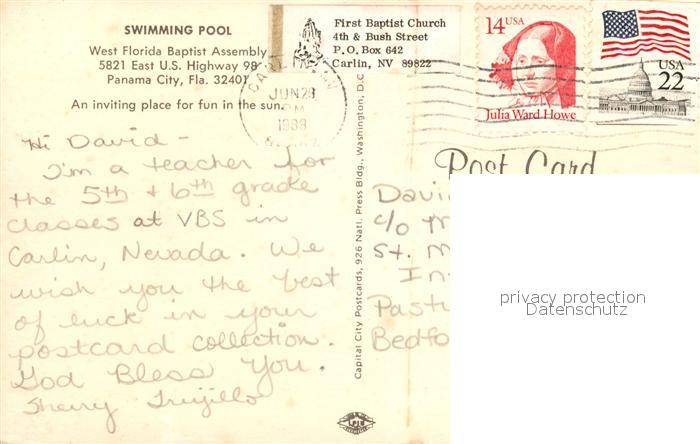 SWIMMING POOL
West Florida Baptist Assembly
5821 East U.S. Highway 98
Panama City, Fla. 32401
An inviting place for fun in the sun.
First Baptist Church
4th & Bush Street
P. O. Box 642
Carlin, NV 89822
JUN 28
PM
1988
14 USA
Julia Ward Howe
USA
22
Hi David -
I'm a teacher for
the 5th + 6th grade
classes at VBS in
Carlin, Nevada. We
wish you the best
of luck in your
postcard collection.
God Bless You.
Sherry Trujillo
Capital City Postcards, 926 Natl. Press Bldg., Washington, D.C
Post Card
David
c/o M
St. M
In
Past
Bedfo
privacy protection
Datenschutz